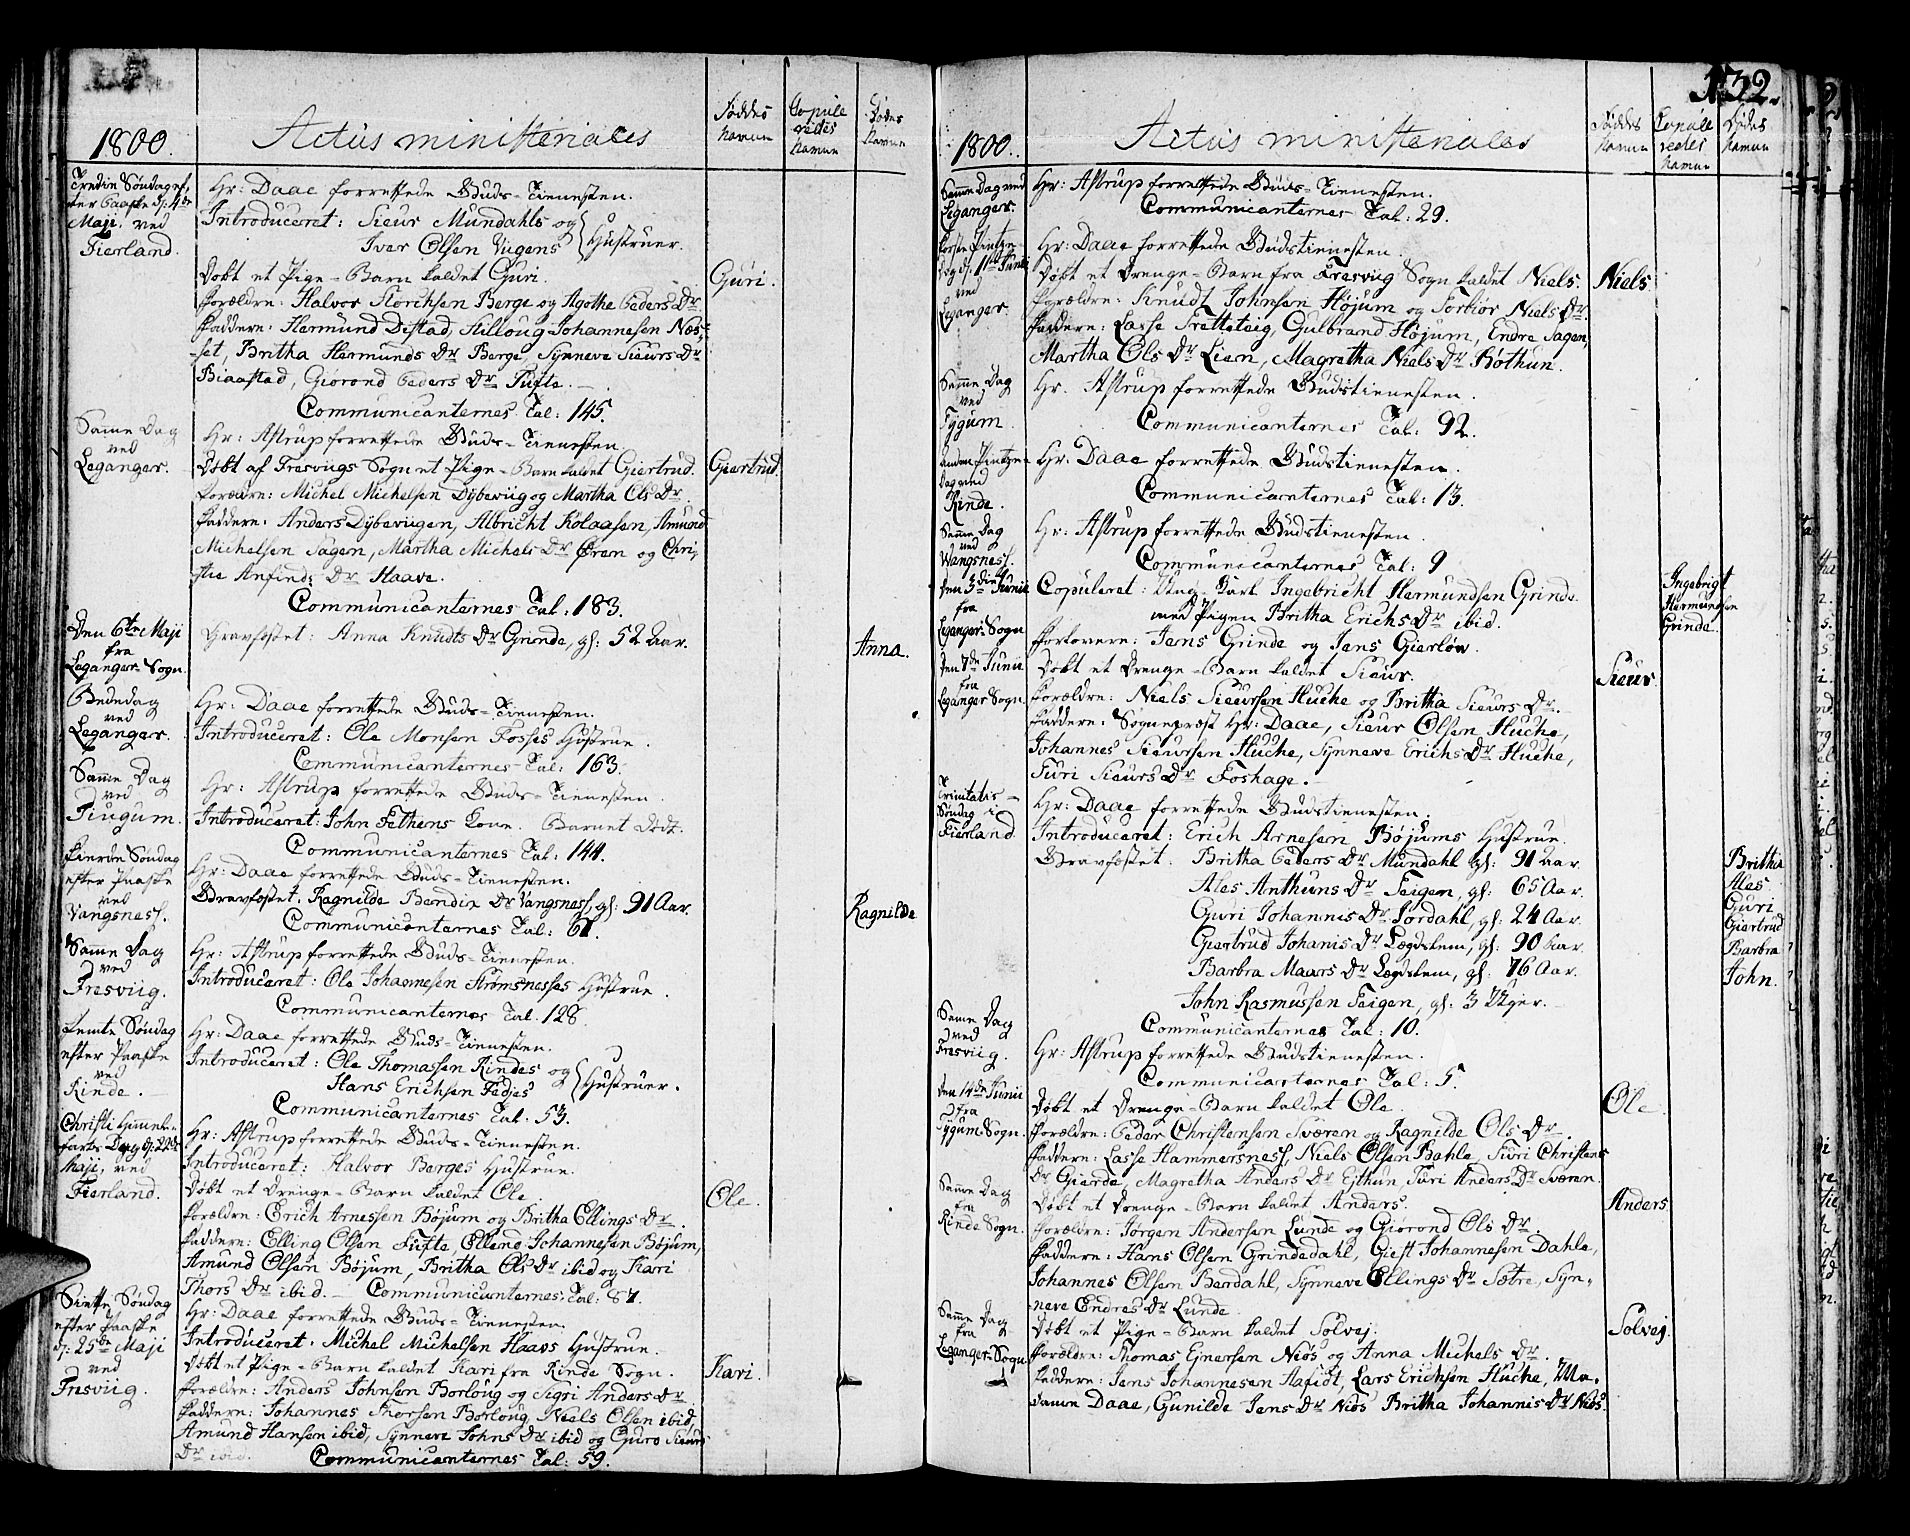 1800.
Actus ministeriales
Føddes Navne
Copuleredes Navne
Dødes Navne
Tredie Søndag ef-
ter Paaske d: 4de
Maji, ved
Fierland.
Hr: Daae forrettede Guds-Tienesten.
Introduceret: Sieur Mundahls og
Iver Olsen Vugens
Hustruer.
Døbt et Pige-Barn kaldet Guri.
Guri.
Forældre: Halvor Størchsen Berge og Agothe Peders Dr
Faddere: Hermund Distad, Hilloug Johannesen Næs-
set, Britha Hermunds Dr Berge, Synneve Sieurs Dr
Biaastad, Giorond Peders Dr Tufte.
Communicanternes Tal: 145.
Samme Dag
ved
Leganger.
Hr: Astrup forrettede Guds-Tienesten.
Døbt af Fresviigs Sogn et Pige-Barn kaldet Giertrud.
Giertrud.
Forældre: Michel Michelsen Dybeviig og Martha Ols Dr.
Faddere: Anders Dybeviigen, Albricht Kolaasen, Amund
Michelsen Sagen, Martha Michels Dr Øren og Chri-
stie Anfinds Dr Haave.
Communicanternes Tal: 183.
Den 6te Maji
fra
Leganger Sogn.
Gravfæstet: Anna Knudts Dr Grinde, gl: 52 Aar.
Anna.
Bededag
ved
Leganger.
Hr: Daae forrettede Guds-Tienesten.
Introduceret: Ole Monsen Fosses Hustrue.
Communicanternes Tal: 163.
Samme Dag
ved
Tiugum.
Hr: Astrup forrettede Guds-Tienesten.
Introduceret: John Fethens Kone. Barnet dødt.
Communicanternes Tal: 144.
Fierde Søndag
efter Paaske
ved
Vangsness.
Hr: Daae forrettede Guds-Tienesten.
Gravfæstet. Ragnilde Bendix Dr Vangsness, gl: 91 Aar.
Ragnilde
Communicanternes Tal: 61.
Samme Dag
ved
Fresviig.
Hr: Astrup forrettede Guds-Tienesten.
Introduceret: Ole Johannesen Strømsnesses Hustrue.
Communicanternes Tal. 128.
Femte Søndag
efter Paaske
ved
Rinde.
Hr: Daae forrettede Guds-Tienesten.
Introduceret: Ole Thomassen Rindes og
Hans Erichsen Fedjes
Hustruer.
Communicanternes Tal: 53.
Christi Himmel-
farts Dag d: 22de
Maji, ved
Fierland.
Hr: Astrup forrettede Guds-Tienesten.
Introduceret: Halvor Berges Hustrue.
Døbt et Drenge-Barn kaldet Ole.
Ole.
Forældre: Erich Arnessen Bøjum og Britha Ellings Dr.
Faddere: Elling Olsen Tufte, Elleng Johannesen Bøjum,
Amund Olsen Bøjum, Britha Ols Dr ibid og Kari
Thors Dr ibid. Communicanternes Tal: 87.
Siette Søndag
efter Paaske
d: 25de Maji
ved
Fresviig.
Hr: Daae forrettede Guds-Tienesten.
Introduceret. Michel Michelsen Haavs Hustrue.
Døbt et Pige-Barn kaldet Kari fra Rinde Sogn.
Kari.
Forældre: Anders Johnsen Borloug og Sigri Anders Dr
Faddere: Johannes Thorsen Borloug, Niels Olsen ibid,
Amund Hansen ibid, Synneve Johns Dr ibid og Guro Sieurs
Dr ibid. Communicanternes Tal: 59.
132.
1800.
Actus ministeriales
Føddes Navne
Copuleredes Navne
Dødes Navne
Samme Dag ved
Leganger.
Hr: Astrup forrettede Guds-Tienesten.
Communicanternes Tal: 29.
Første Pintze-
Dag d: 1ste Junii
ved
Leganger.
Hr: Daae forrettede Gudstienesten.
Døbt et Drenge-Barn fra Fresviig Sogn kaldet Niels.
Niels.
Forældre: Knudt Johnsen Højum og Torbiør Niels Dr.
Faddere: Lasse Tretteteig, Gulbrand Højum, Endre Sagen,
Martha Ols Dr Lien, Magretha Niels Dr Bøthun.
Samme Dag
ved
Tygum.
Hr. Astrup forrettede Gudstienesten.
Communicanternes Tal: 92.
Anden Pintze-
Dag ved
Rinde.
Hr: Daae forrettede Gudstienesten.
Communicanternes Tal: 13.
Samme Dag
ved
Wangsness.
Hr: Astrup forrettede Gudstienesten.
Communicanternes Tal: 9
Den 3die Junii
fra
Leganger Sogn
Copuleret: Ung-Karl Ingebricht Hermundsen Grinde
med Pigen Britha Erichs Dr ibid.
Forlovere: Jens Grinde og Jens Gierløw.
Ingebrigt
Hermundsen
Grinde.
Den 7de Junii
fra
Leganger Sogn.
Døbt et Drenge-Barn kaldet Sieur.
Sieur.
Forældre: Niels Sieursen Huche og Britha Sieurs Dr.
Faddere: Sognepræst Hr: Daae, Sieur Olsen Huche,
Johannes Sieursen Huche, Synneve Erichs Dr Huche,
Turi Sieurs Dr Foshage.
Trinitatis-
Søndag i
Fierland
Hr: Daae forrettede Gudstienesten.
Introduceret: Erich Arnesen Bøjums Hustrue.
Gravfæstet: Britha Peders Dr Mundahl gl: 91 Aar.
Ales Anthuns Dr Teigen, gl: 65 Aar.
Guri Johannis Dr Jordahl, gl: 24 Aar.
Giertrud Johanis Dr Legdslem, gl: 90 Aar.
Barbra Maars Dr Legdslem, gl: 76 Aar.
John Rasmussen Teigen, gl: 3 Uger.
Britha
Ales
Guri
Giertrud
Barbra
John.
Communicanternes Tal: 10.
Samme Dag
ved
Fresviig.
Hr: Astrup forrettede Gudstienesten.
Communicanternes Tal: 5.
Den 14de Junii
fra
Tygum Sogn.
Døbt et Drenge-Barn kaldet Ole.
Ole.
Forældre: Peder Christensen Sværen og Ragnilde Ols Dr.
Faddere: Lasse Hammersness, Niels Olsen Bahle, Turi Christens
Dr Gierde, Magretha Anders Dr Ejthun, Turi Anders Dr Sværen.
Samme Dag
fra
Rinde Sogn.
Døbt et Drenge-Barn kaldet Anders.
Anders.
Forældre: Jørgen Andersen Lunde og Giorond Ols Dr.
Faddere: Hans Olsen Grindedahl, Giest Johannesen Dahle,
Johannes Olsen Berdahl, Synneve Ellings Dr Sætre, Syn-
neve Endres Dr Lunde.
Samme Dag
fra
Leganger-Sogn
Døbt et Pige-Barn kaldet Solvej.
Solvej.
Forældre: Thomas Ejnersen Niøs og Anna Michels Dr.
Faddere: Jens Johannesen Hafidt, Lars Erichsen Huche, Ma-
damme Daae, Gunilde Jens Dr Niøs Britha Johannis Dr Niøs.